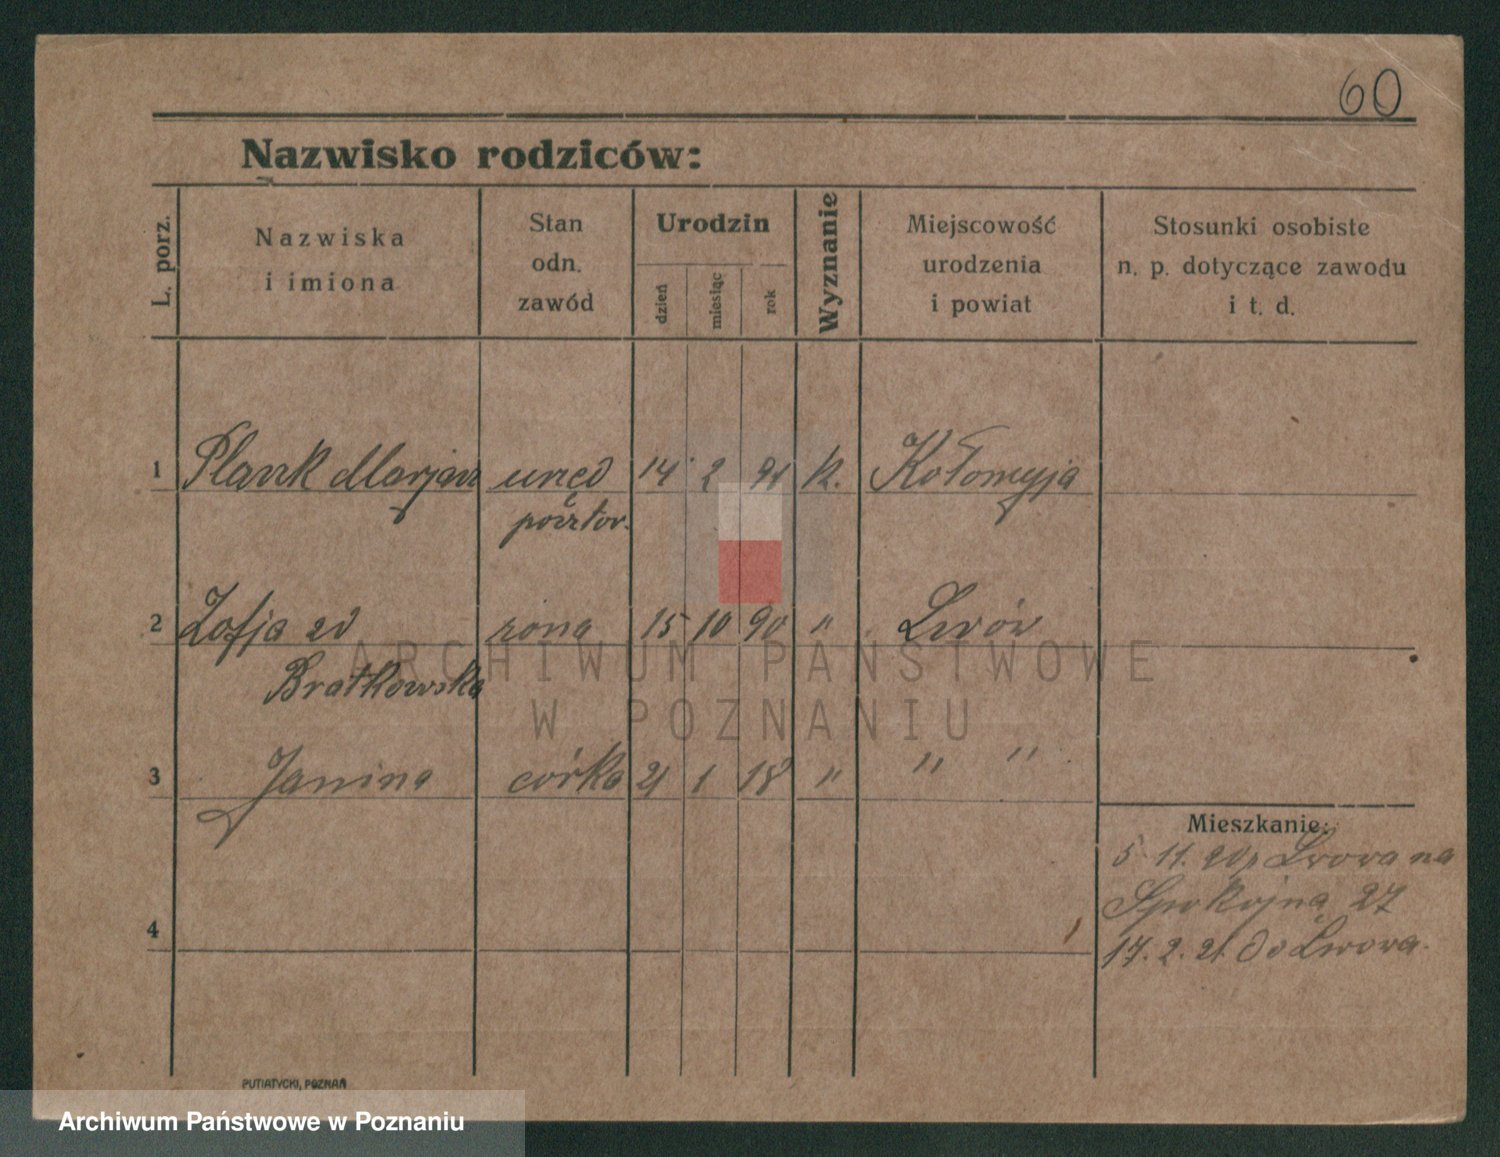 60
Nazwisko rodziców:
L. porz.
Nazwiska
i imiona
Stan
odn.
zawód
Urodzin
dzień
miesiąc
rok
Wyznanie
Miejscowość
urodzenia
i powiat
Stosunki osobiste
n. p. dotyczące zawodu
i t. d.
1 Plank Marjan urzęd 14 2 k. Kołomyja
pocztow.
2 Zofja zd żona 15 10 90 " Lwów
Bratkowska
3 Janina córka 21 1 18 " " "
Mieszkanie:
5 11. 20 z Lwowa na
Spokojną 27
4
17. 2. 21. do Lwowa.
ARCHIWUM PAŃSTWOWE
W POZNANIU
PUTIATYCKI, POZNAŃ
Archiwum Państwowe w Poznaniu